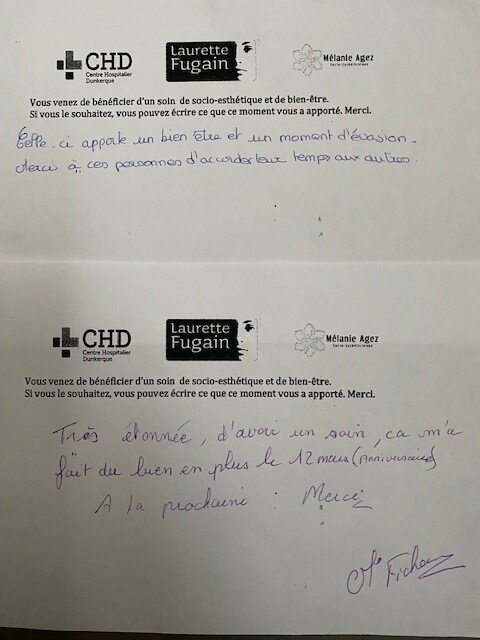 CHD
Centre Hospitalier
Dunkerque
Laurette
Fugain
Mélanie Agez
Socio-Esthéticienne
Vous venez de bénéficier d'un soin de socio-esthétique et de bien-être.
Si vous le souhaitez, vous pouvez écrire ce que ce moment vous a apporté. Merci.
Celle-ci apporte un bien être et un moment d'évasion.
Merci à ces personnes d'accorder leur temps aux autres.
CHD
Centre Hospitalier
Dunkerque
Laurette
Fugain
Mélanie Agez
Socio-Esthéticienne
Vous venez de bénéficier d'un soin de socio-esthétique et de bien-être.
Si vous le souhaitez, vous pouvez écrire ce que ce moment vous a apporté. Merci.
Très étonnée, d'avoir un soin, ca m'a
fait du bien en plus le 12 mars (Anniversaire)
A la prochaine : Merci